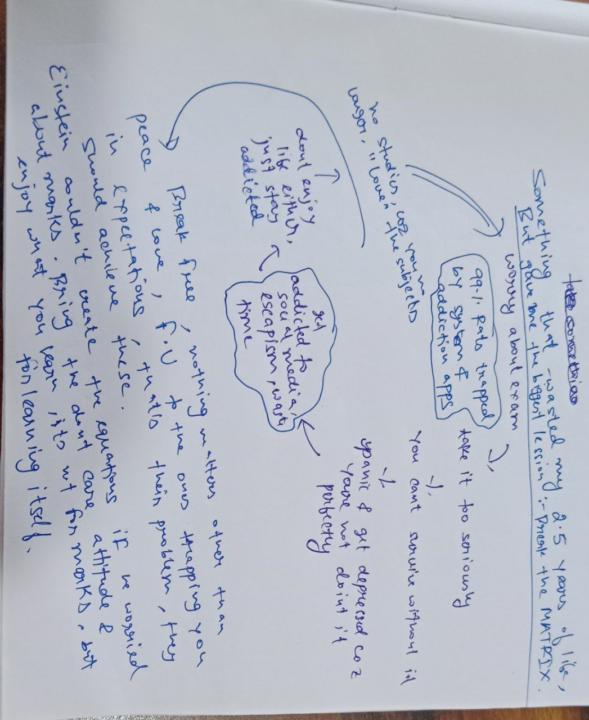 Something that wasted my 2.5 years of life,
But gave me the biggest lesson :- Break the MATRIX.
worry about exam
take it too seriously
You cant survive without it
panic & get depressed coz
you're not doint it
perfectly
99.1. Rats trapped
by system &
addiction apps
get
addicted to
social media,
escapism, waste
time
dont enjoy
life either,
just stay
addicted
no studies, coz you no
longer, "love" the subjects
Break free, nothing matters other than
peace & love, F.U to the ones trapping you
in expectations, that's their problem, they
should achieve these.
Einstein couldn't create the equations if he worried
about marks. Bring the dont care attitude &
enjoy what you learn, its not for marks, but
for learning itself.